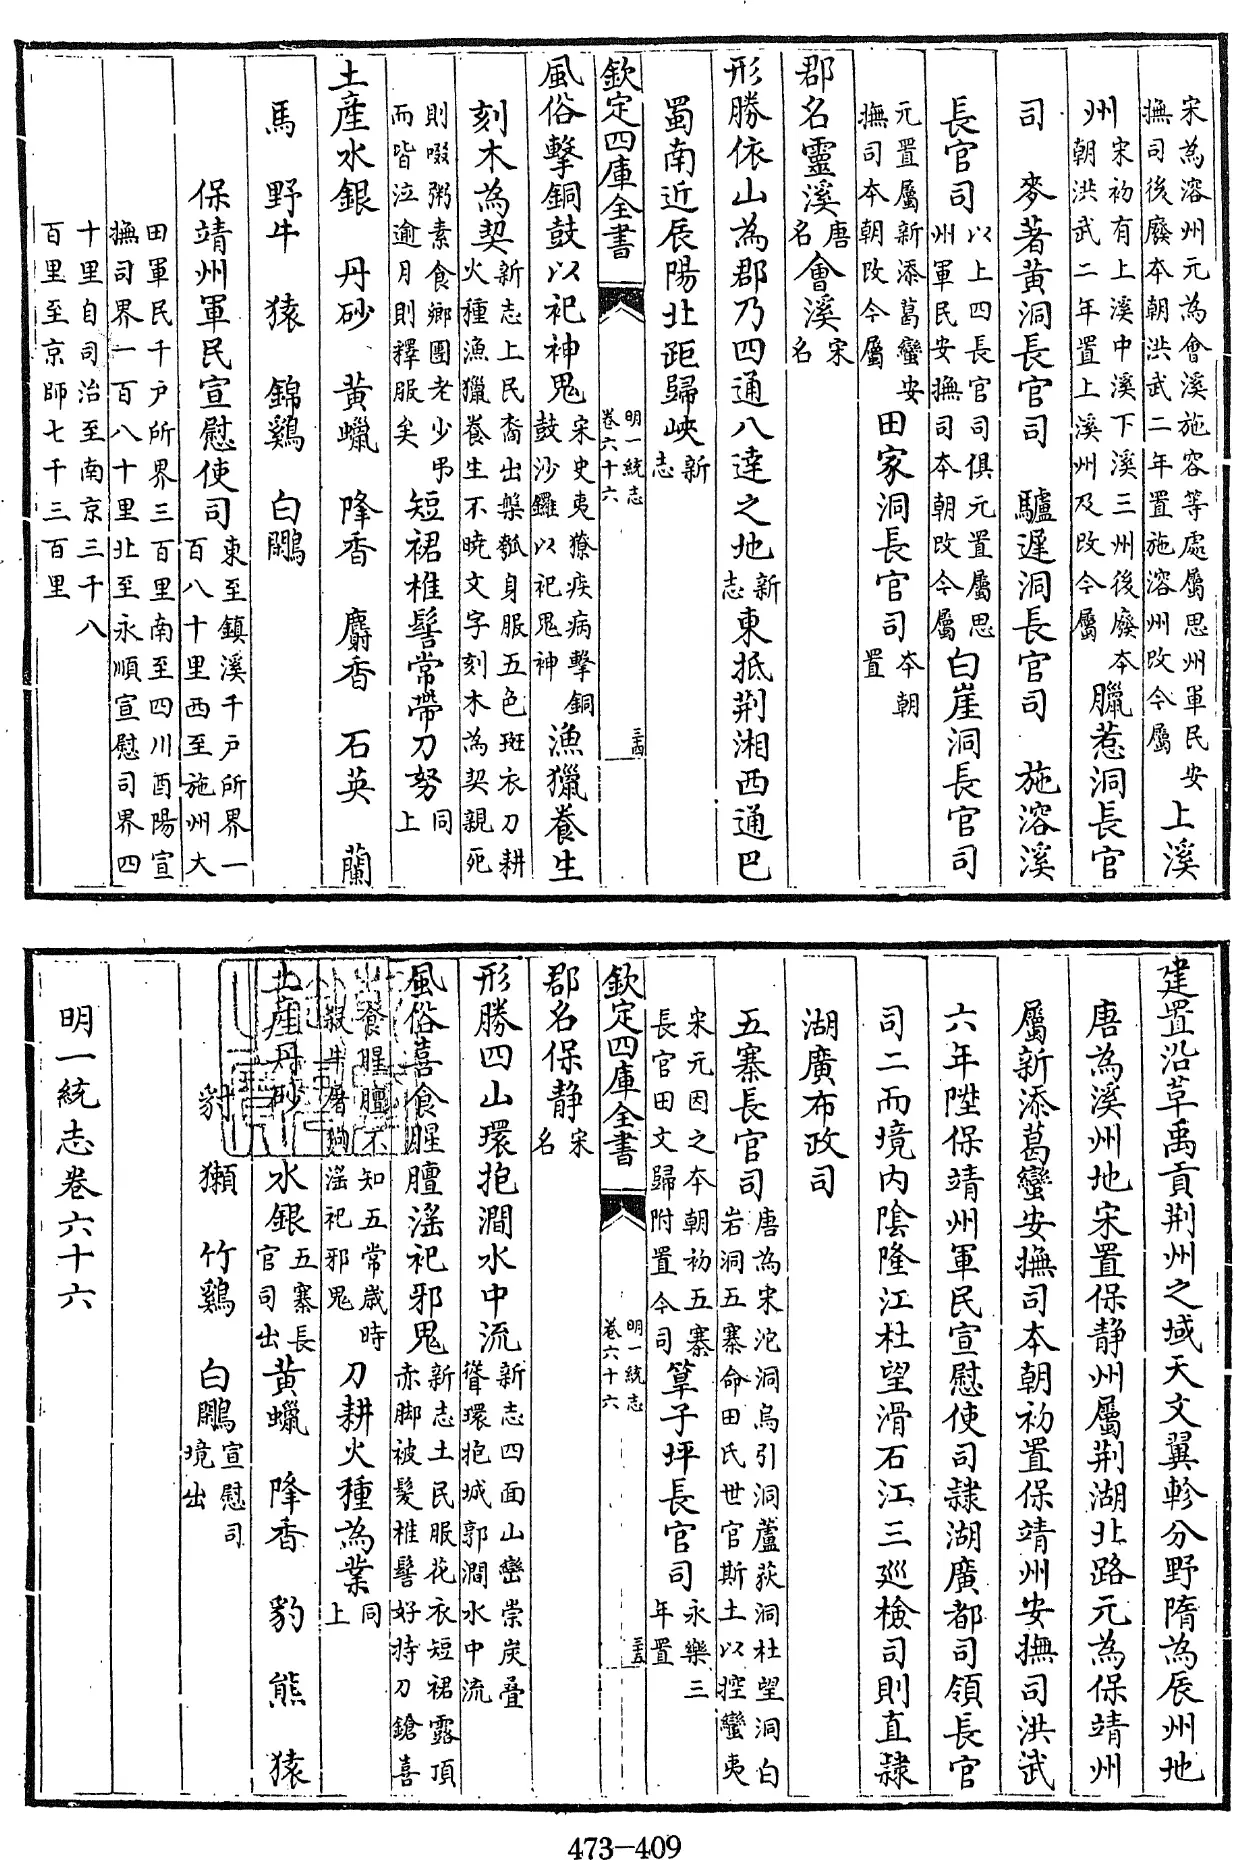 宋為溶州元為會溪施容等處屬思州軍民安
撫司後廢本朝洪武二年置施溶州改今屬
上溪
州
宋初有上溪中溪下溪三州後廢本
朝洪武二年置上溪州及改今屬
臘惹洞長官
司　麥著黃洞長官司　驢遲洞長官司　施溶溪
長官司
以上四長官司俱元置屬思
州軍民安撫司本朝改今屬
白崖洞長官司
元置屬新添葛蠻安
撫司本朝改今屬
田家洞長官司
本朝
置
郡名靈溪
唐
名
會溪
宋
名
形勝依山為郡乃四通八達之地
新
志
東抵荆湘西通巴
蜀南近辰陽北距歸峽
新
志
欽定四庫全書
明一統志
卷六十六
三十四
風俗擊銅鼓以祀神鬼
宋史夷獠疾病擊銅
鼓沙鑼以祀鬼神
漁獵養生
刻木為契
新志土民喬出槃瓠身服五色斑衣刀耕
火種漁獵養生不曉文字刻木為契親死
則啜粥素食鄉團老少弔
而皆泣逾月則釋服矣
短裙椎髻常帶刀努
同
上
土產水銀　丹砂　黃蠟　降香　麝香　石英　蘭
馬　野牛　猿　錦鷄　白鷴
保靖州軍民宣慰使司
東至鎮溪千戶所界一
百八十里西至施州大
田軍民千戶所界三百里南至四川酉陽宣
撫司界一百八十里北至永順宣慰司界四
十里自司治至南京三千八
百里至京師七千三百里
建置沿革禹貢荆州之域天文翼軫分野隋為辰州地
唐為溪州地宋置保静州屬荆湖北路元為保靖州
屬新添葛蠻安撫司本朝初置保靖州安撫司洪武
六年陞保靖州軍民宣慰使司隷湖廣都司領長官
司二而境内隂隆江杜望滑石江三廵檢司則直隷
湖廣布政司
五寨長官司
唐為宋沱洞烏引洞蘆荻洞杜望洞白
岩洞五寨命田氏世官斯土以控蠻夷
宋元因之本朝初五寨
長官田文歸附置今司
箪子坪長官司
永樂三
年置
欽定四庫全書
明一統志
卷六十六
三十五
郡名保静
宋
名
形勝四山環抱澗水中流
新志四面山巒崇炭疊
聳環抱城郭澗水中流
風俗喜食腥膻滛祀邪鬼
新志土民服花衣短裙露頂
赤脚被髮椎髻好持刀鎗喜
餮腥膻不知五常歲時
殺牛屠狗滛祀邪鬼
刀耕火種為業
同
上
土產丹砂　水銀
五寨長
官司出
黃蠟　降香　豹　熊　猿
豺　獺　竹鷄　白鷴
宣慰司
境出
明一統志卷六十六
473-409